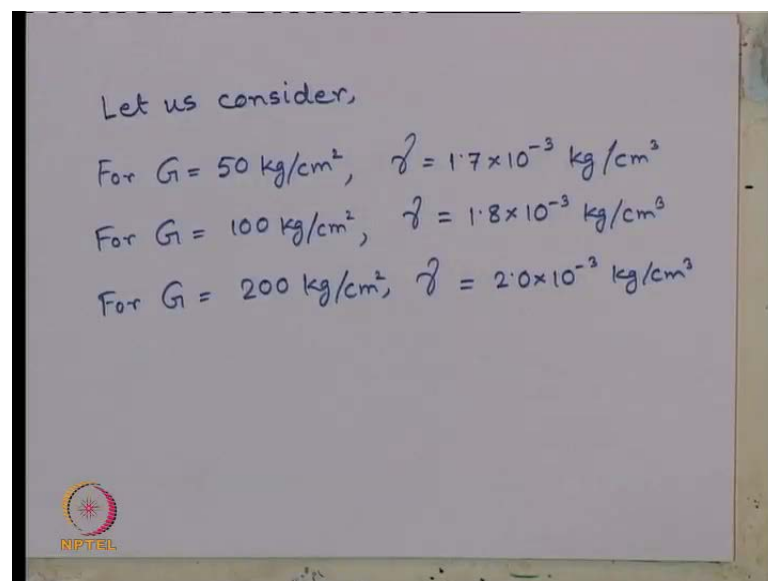 Let us consider,
For G = 50 kg/cm², γ = 1.7×10⁻³ kg/cm³
For G = 100 kg/cm², γ = 1.8×10⁻³ kg/cm³
For G = 200 kg/cm², γ = 2.0×10⁻³ kg/cm³
NPTEL